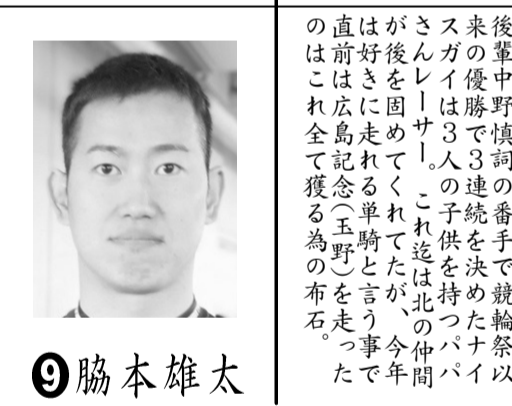 後輩中野慎詞の番手で競輪祭以
来の優勝で3連続を決めたナイ
スガイは3人の子供を持つパパ
さんレーサー。これ迄は北の仲間
が後を固めてくれてたが、今年
は好きに走れる単騎と言う事で
直前は広島記念(玉野)を走った
のはこれ全て獲る為の布石。
❾脇本雄太